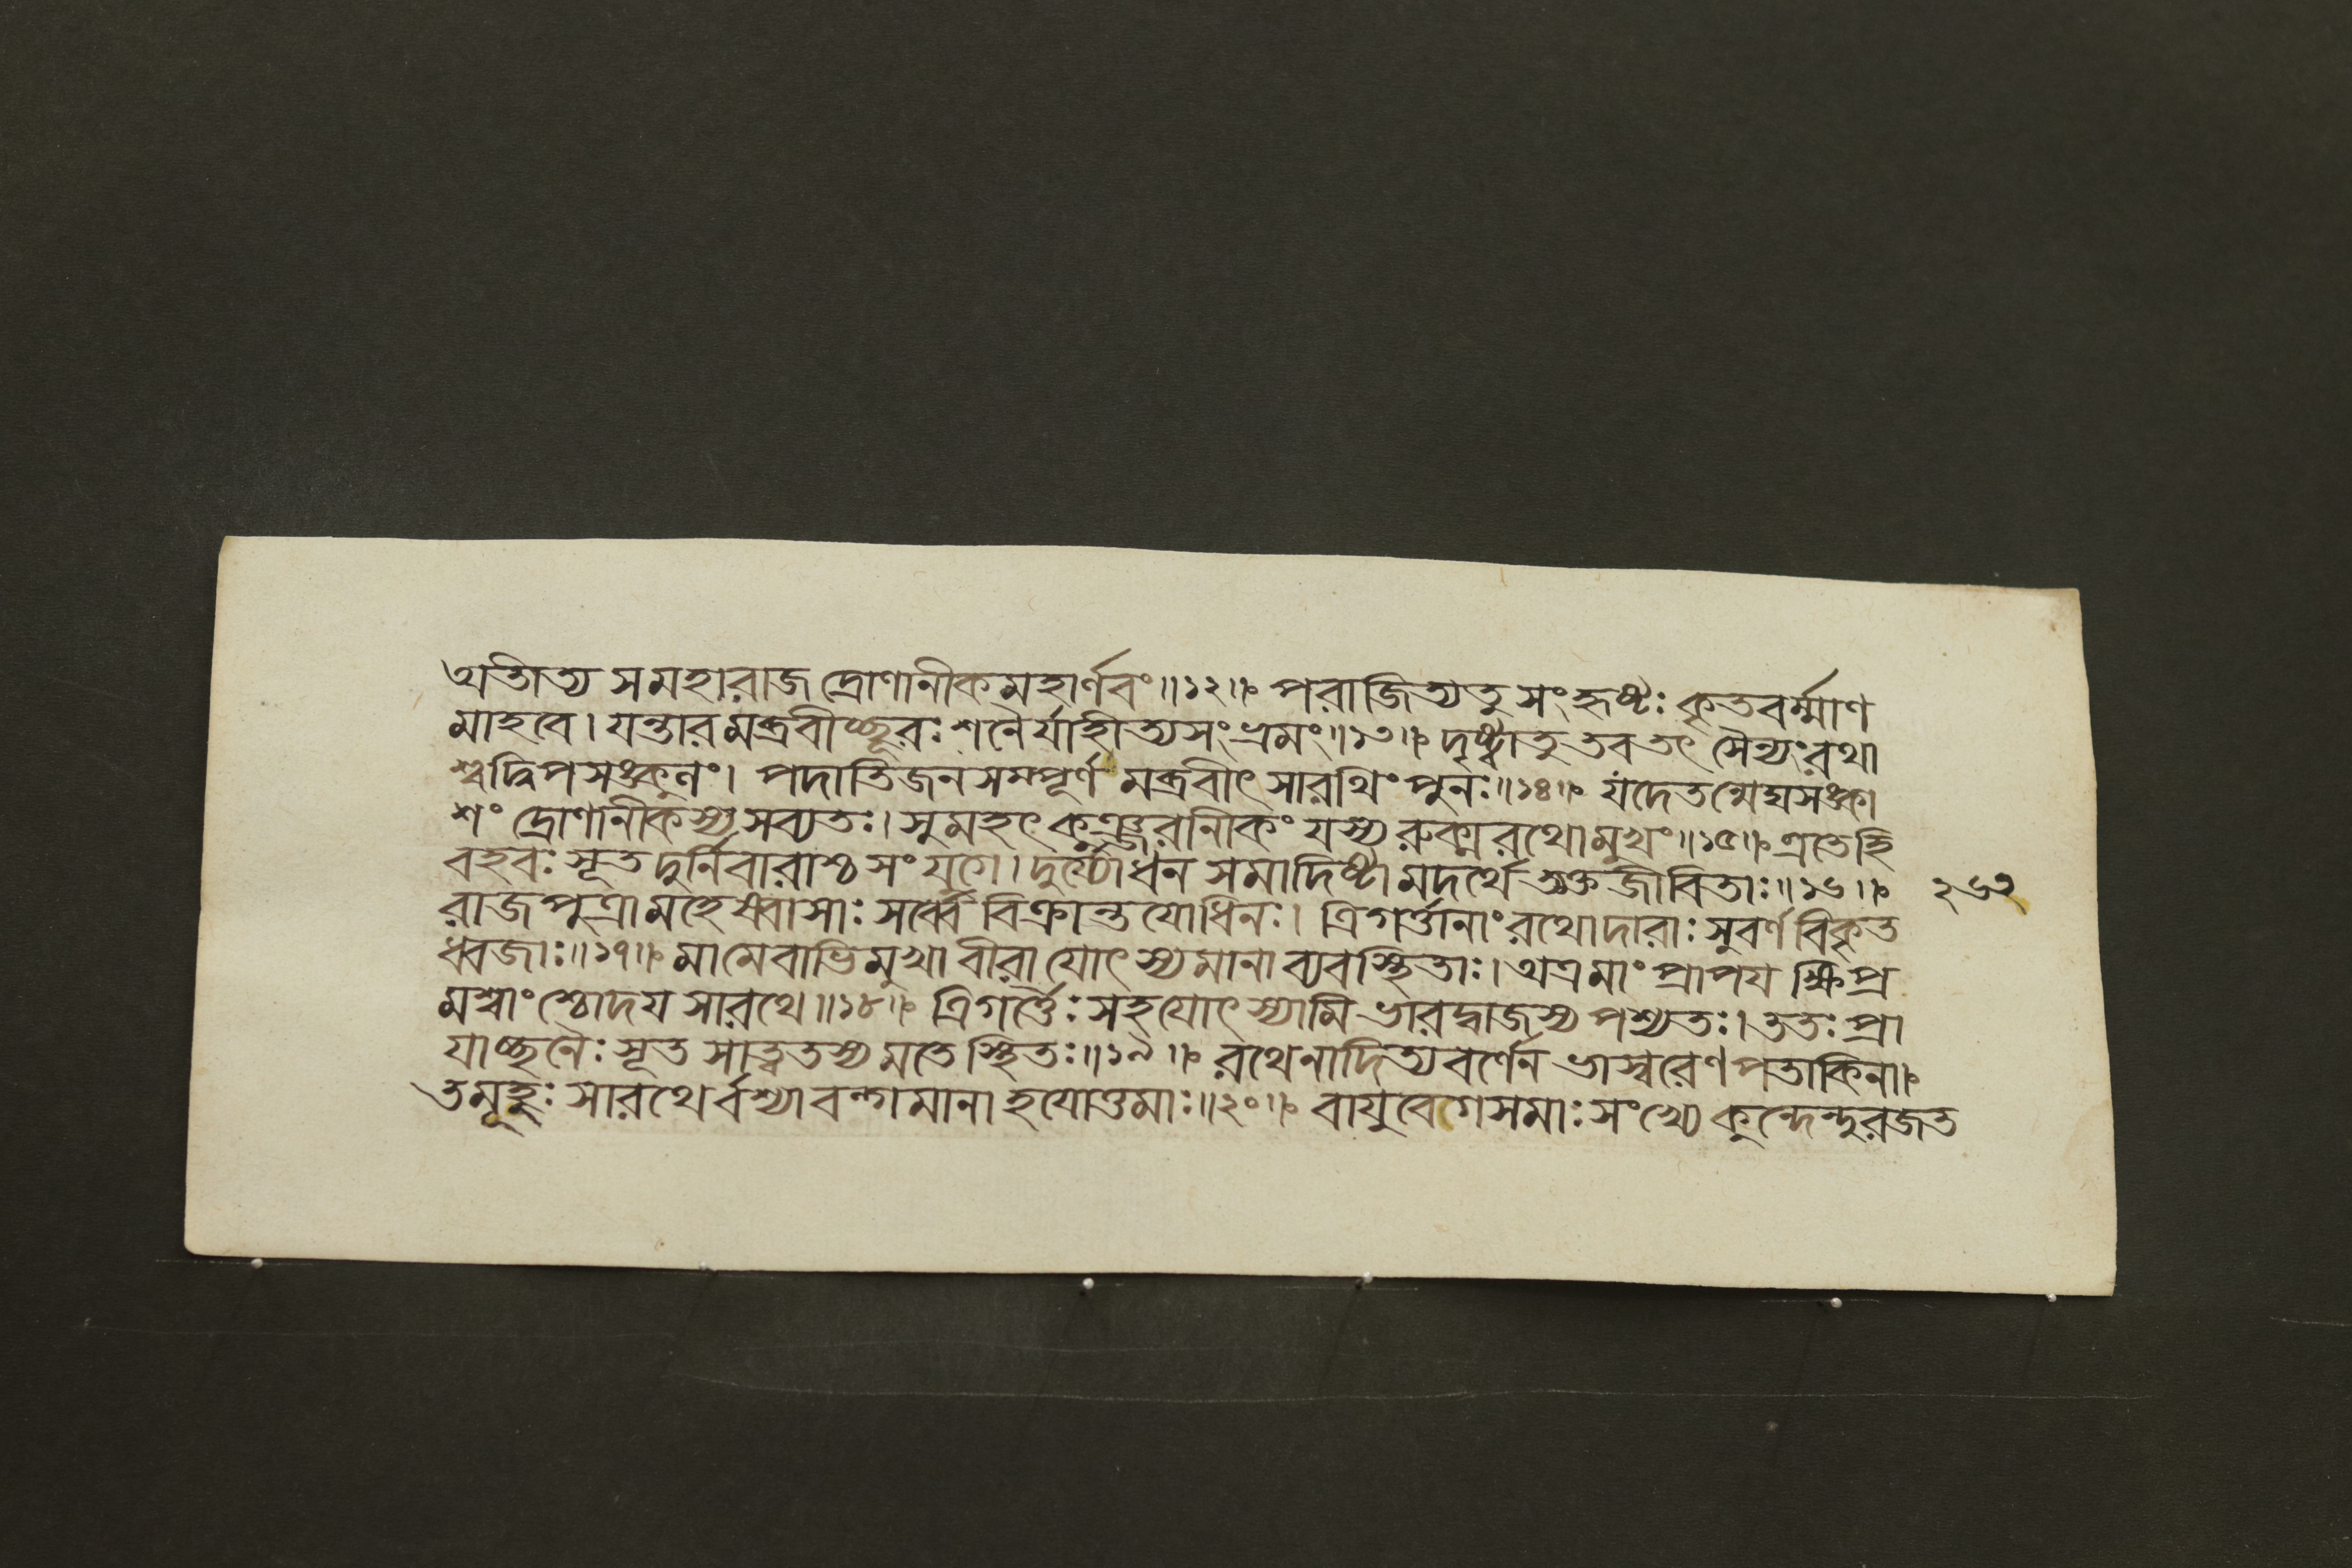 অতীত্য স মহারাজ দ্রোণানীকমহার্ণবং॥১২॥ পরাজিত্য তু সংহৃষ্টঃ কৃতবর্ম্মাণ
মাহবে। যন্তারমব্রবীচ্ছূরঃ শনৈর্যাহীত্যসংভ্রমং॥১৩॥ দৃষ্ট্বা তু তব তৎ সৈন্যং রথা
শ্বদ্বিপসঙ্কুলং। পদাতিজনসম্পূর্ণমব্রবীৎ সারথিং পুনঃ॥১৪॥ যদেতন্মেঘসঙ্কা
শং দ্রোণানীকস্য সব্যতঃ। সুমহৎ কুঞ্জরানীকং যস্য রুক্মরথো মুখং॥১৫॥ এতে হি
বহবঃ সূত দুর্নিবারাশ্চ সংযুগে। দুর্য্যোধন সমাদিষ্টা মদর্থে ত্যক্তজীবিতাঃ॥১৬॥ ২৬২
রাজপুত্রা মহেষ্বাসাঃ সর্ব্বে বিক্রান্তযোধিনঃ। ত্রিগর্ত্তানাং রথোদারাঃ সুবর্ণবিকৃত
ধ্বজাঃ॥১৭॥ মামেবাভিমুখা বীরা যোৎস্যমানা ব্যবস্থিতাঃ। অত্র মাং প্রাপয ক্ষিপ্র
মশ্বাংশ্চোদয সারথে॥১৮॥ ত্রিগর্ত্তৈঃ সহ যোৎস্যামি ভারদ্বাজস্য পশ্যতঃ। ততঃ প্রা
যাচ্ছনৈঃ সূত সাত্বতস্য মতে স্থিতঃ॥১৯॥ রথেনাদিত্যবর্ণেন ভাস্বরেণ পতাকিনা॥
তমূহুঃ সারথের্বশ্যা বল্গমানা হযোত্তমাঃ॥২০॥ বাযুবেগসমাঃ সংখ্যে কুন্দেন্দুরজত